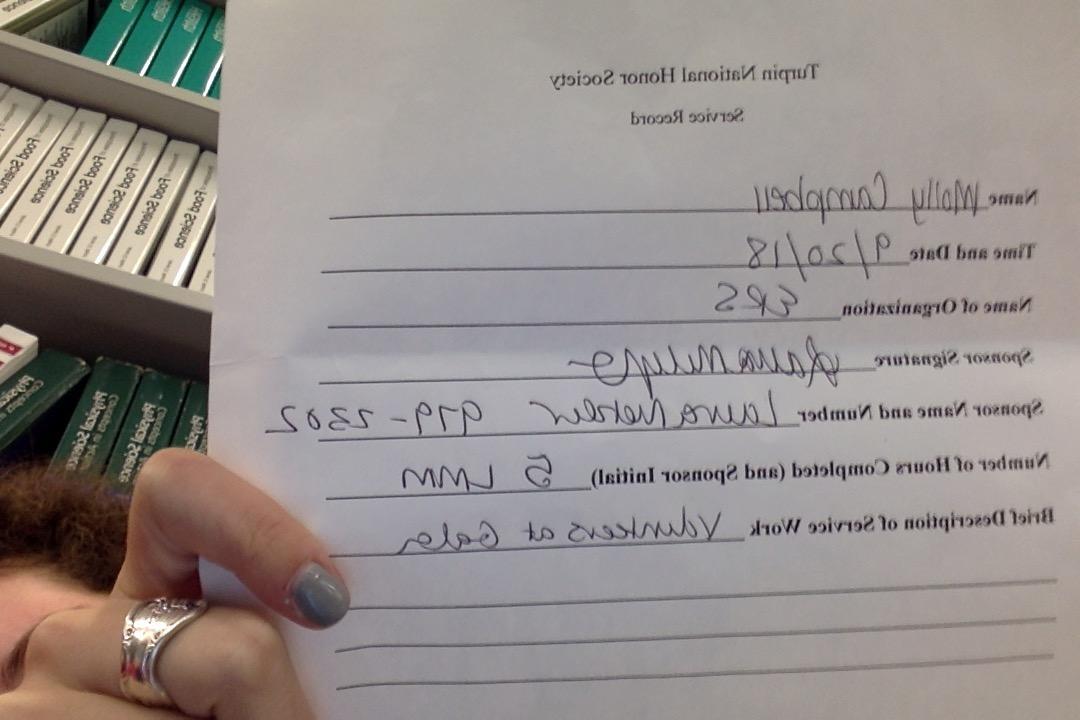 Turpin National Honor Society
Service Record
Name Molly Campbell
Time and Date 9/20/18
Name of Organization
Sponsor Signature
Sponsor Name and Number 979-2302
Number of Hours Completed (and Sponsor Initial) 5 LMM
Brief Description of Service Work Volunteers at Gala
Food Science
Food Science
Food Science
Food Science
Food Science
Food Science
Physical Science
Physical Science